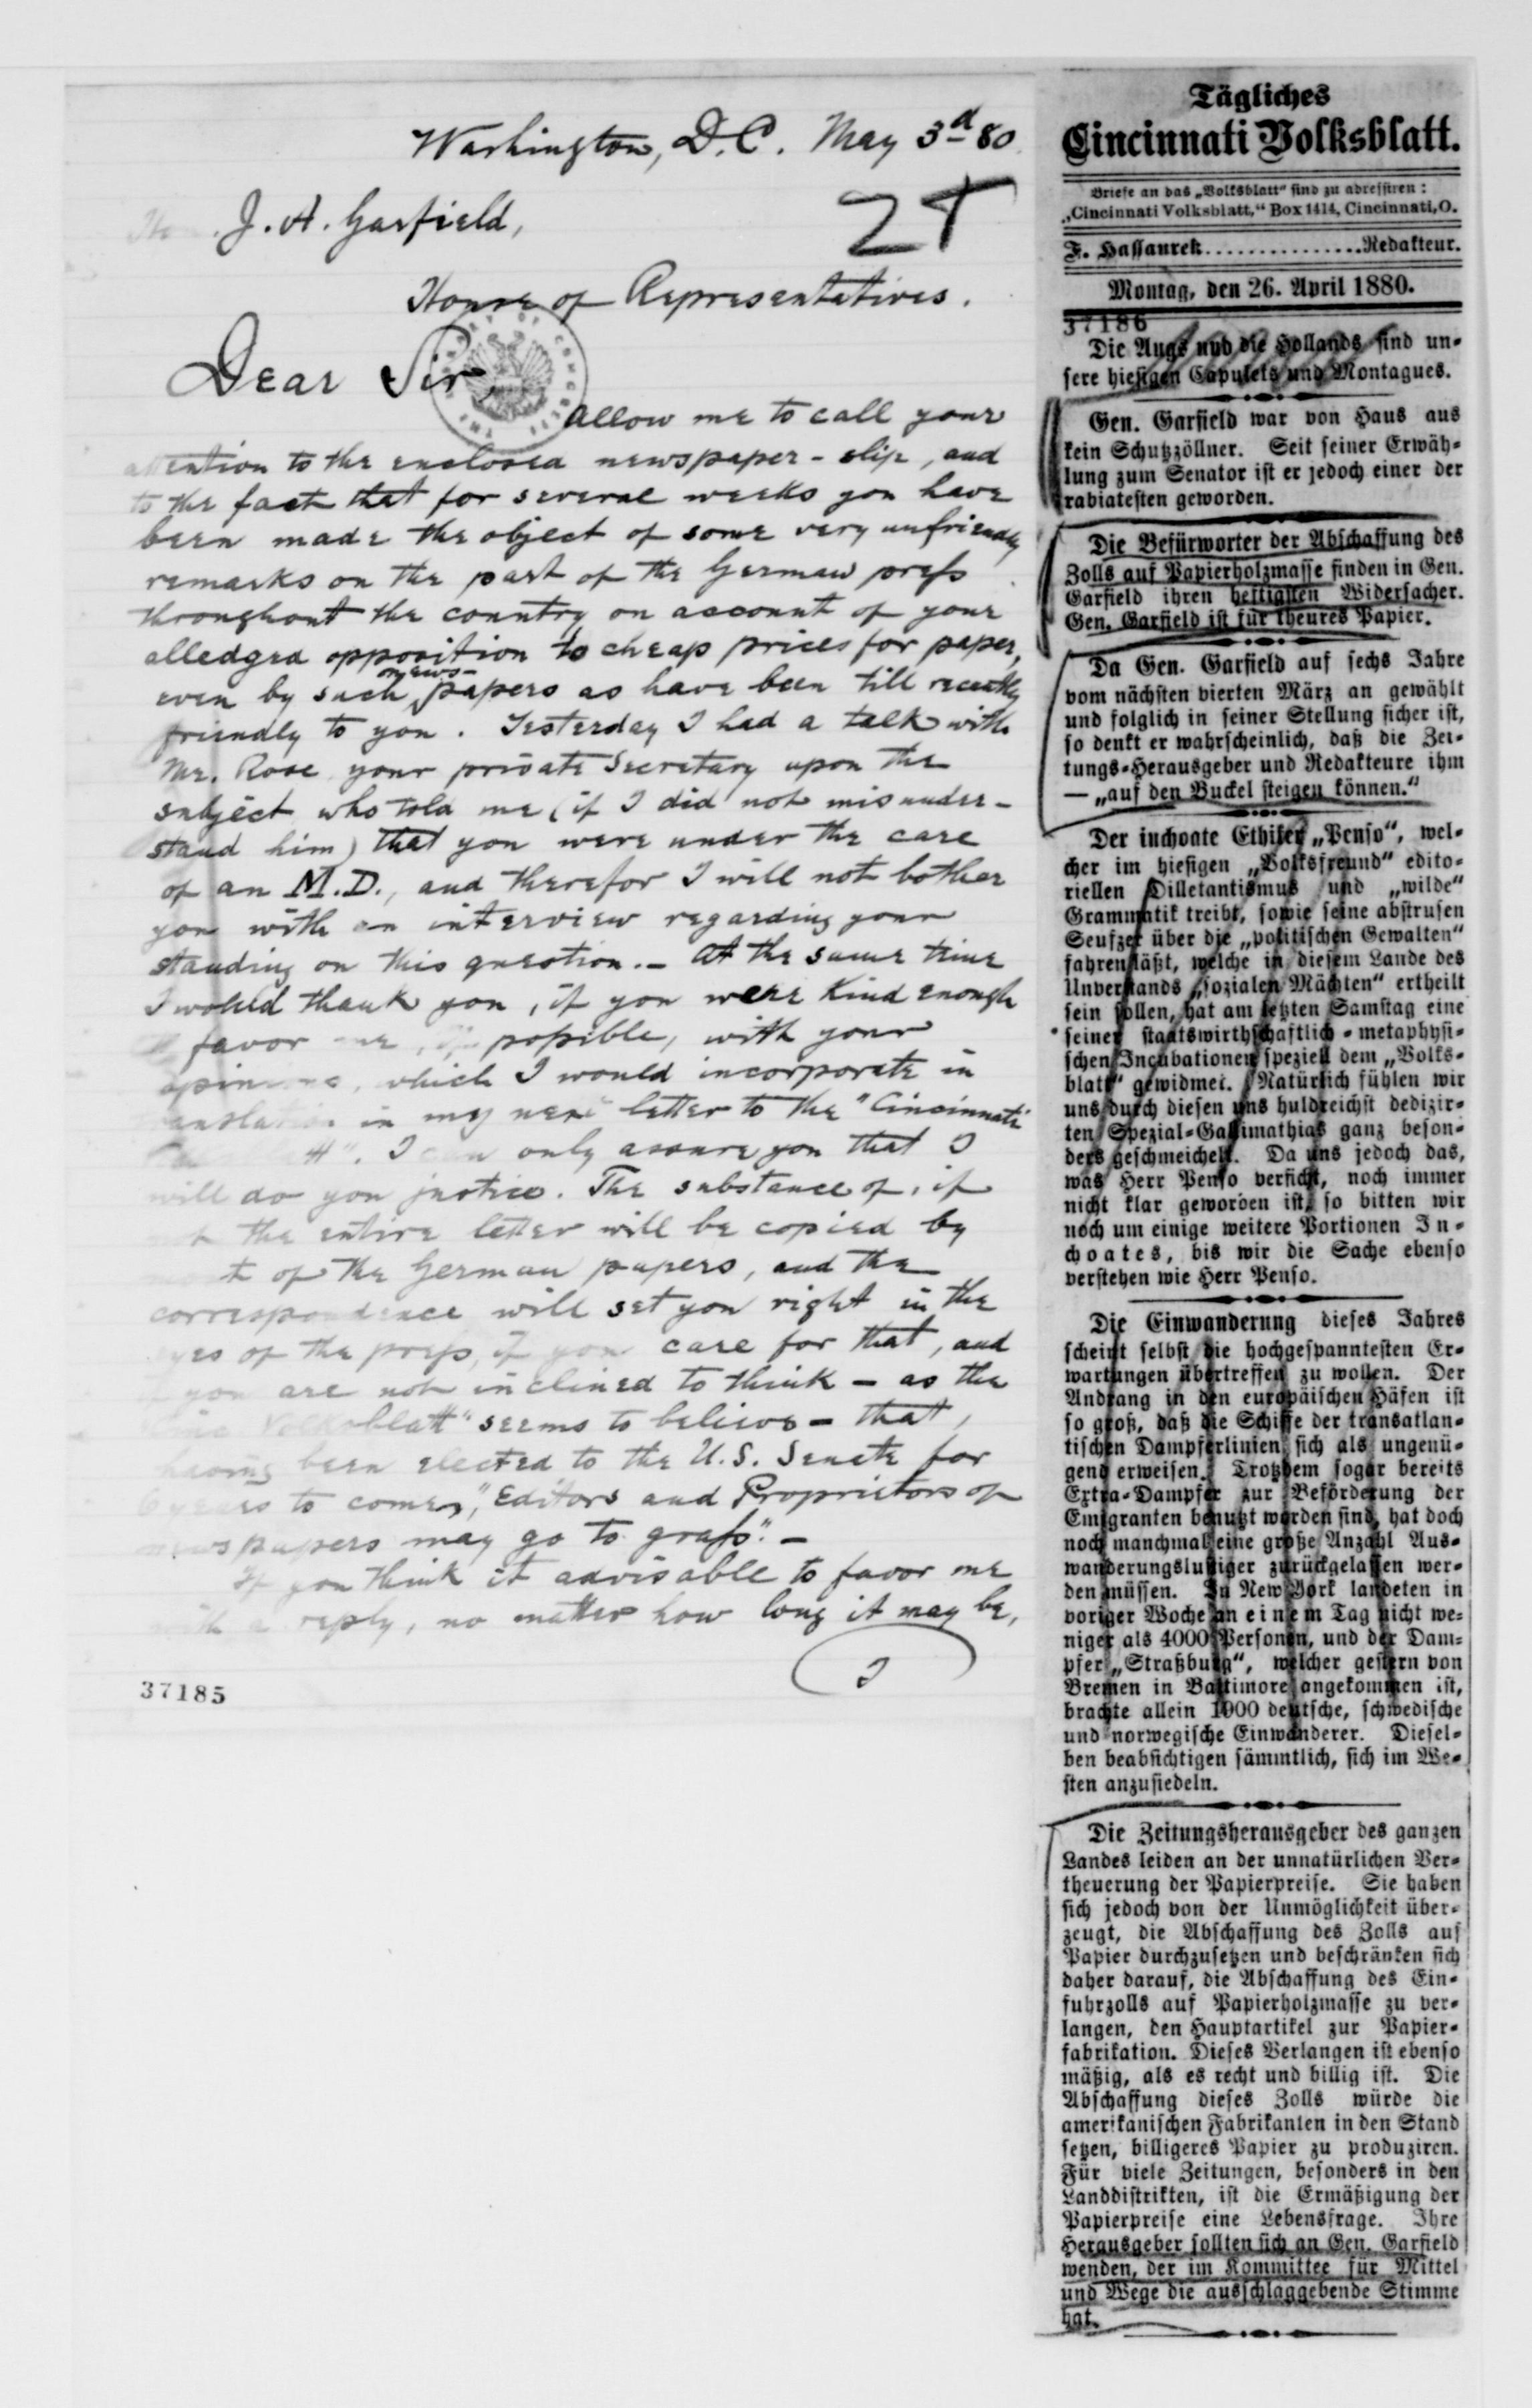 Washington, D.C. May 3d 80
2T
Hon. J. A. Garfield,
House of Representatives.
Dear Sir,
Allow me to call your
attention to the enclosed newspaper-slip, and
to the fact that for several weeks you have
been made the object of some very unfriendly
remarks on the part of the German press
throughout the country on account of your
alledged opposition to cheap prices for paper,
even by such news-papers as have been till recently
friendly to you. Yesterday I had a talk with
Mr. Rose your private Secretary upon the
subject who told me (if I did not misunder-
stand him) that you were under the care
of an M.D., and therefor I will not bother
you with an interview regarding your
standing on this question.- At the same time
I would thank you, if you were kind enough
favor me, if possible, with your
opinions, which I would incorporate in
translation in my next letter to the "Cincinnati
I can only assure you that I
will do you justice. The substance of, if
the entire letter will be copied by
most of the German papers, and the
correspondence will set you right in the
eyes of the press, if you care for that, and
you are not inclined to think - as the
Volksblatt" seems to believe - that,
having been elected to the U.S. Senate for
6 years to come, "Editors and Proprietors of
newspapers may go to grass". -
If you think it advisable to favor me
with a reply, no matter how long it may be,
I
37185
Tägliches
Cincinnati Volksblatt.
Briefe an das „Volksblatt" sind zu adressiren:
„Cincinnati Volksblatt," Box 1414, Cincinnati, O.
F. Hassaurek...............Redakteur.
Montag, den 26. April 1880.
37186
Die Augs und die Hollands sind un-
sere hiesigen Capulets und Montagues.
Gen. Garfield war von Haus aus
kein Schutzzöllner. Seit seiner Erwäh-
lung zum Senator ist er jedoch einer der
rabiatesten geworden.
Die Befürworter der Abschaffung des
Zolls auf Papierholzmasse finden in Gen.
Garfield ihren heftigsten Widersacher.
Gen. Garfield ist für theures Papier.
Da Gen. Garfield auf sechs Jahre
vom nächsten vierten März an gewählt
und folglich in seiner Stellung sicher ist,
so denkt er wahrscheinlich, daß die Zei-
tungs-Herausgeber und Redakteure ihm
— „auf den Buckel steigen können."
Der inchoate Ethiker „Penso", wel-
cher im hiesigen „Volksfreund" edito-
riellen Dilletantismus und „wilde"
Grammatik treibt, sowie seine abstrusen
Seufzer über die „politischen Gewalten"
fahren läßt, welche in diesem Lande des
Unverstands „sozialen Mächten" ertheilt
sein sollen, hat am letzten Samstag eine
seiner staatswirthschaftlich-metaphysi-
schen Incubationen speziell dem „Volks-
blatt" gewidmet. Natürlich fühlen wir
uns durch diesen uns huldreichst dedizir-
ten Spezial-Gallimathias ganz beson-
ders geschmeichelt. Da uns jedoch das,
was Herr Penso verficht, noch immer
nicht klar geworden ist, so bitten wir
noch um einige weitere Portionen In-
choates, bis wir die Sache ebenso
verstehen wie Herr Penso.
Die Einwanderung dieses Jahres
scheint selbst die hochgespanntesten Er-
wartungen übertreffen zu wollen. Der
Andrang in den europäischen Häfen ist
so groß, daß die Schiffe der transatlan-
tischen Dampferlinien sich als ungenü-
gend erweisen. Trotzdem sogar bereits
Extra-Dampfer zur Beförderung der
Emigranten benutzt worden sind, hat doch
noch manchmal eine große Anzahl Aus-
wanderungslustiger zurückgelassen wer-
den müssen. In New York landeten in
voriger Woche an einem Tag nicht we-
niger als 4000 Personen, und der Dam-
pfer „Straßburg", welcher gestern von
Bremen in Baltimore angekommen ist,
brachte allein 1900 deutsche, schwedische
und norwegische Einwanderer. Diesel-
ben beabsichtigen sämmtlich, sich im We-
sten anzusiedeln.
Die Zeitungsherausgeber des ganzen
Landes leiden an der unnatürlichen Ver-
theuerung der Papierpreise. Sie haben
sich jedoch von der Unmöglichkeit über-
zeugt, die Abschaffung des Zolls auf
Papier durchzusetzen und beschränken sich
daher darauf, die Abschaffung des Ein-
fuhrzolls auf Papierholzmasse zu ver-
langen, den Hauptartikel zur Papier-
fabrikation. Dieses Verlangen ist ebenso
mäßig, als es recht und billig ist. Die
Abschaffung dieses Zolls würde die
amerikanischen Fabrikanten in den Stand
setzen, billigeres Papier zu produziren.
Für viele Zeitungen, besonders in den
Landdistrikten, ist die Ermäßigung der
Papierpreise eine Lebensfrage. Ihre
Herausgeber sollten sich an Gen. Garfield
wenden, der im Kommittee für Mittel
und Wege die ausschlaggebende Stimme
hat.